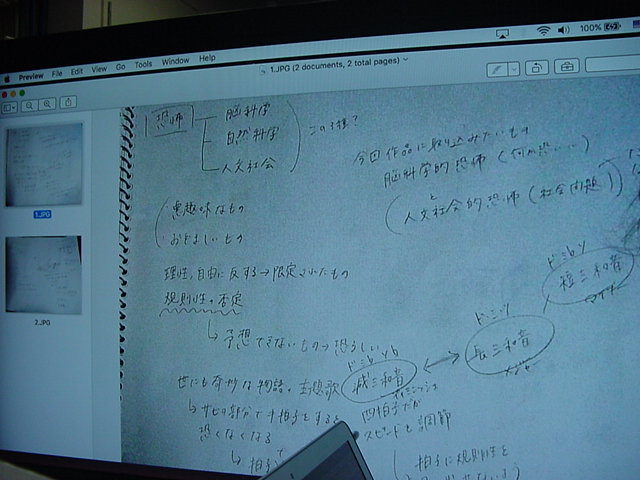 Preview File Edit View Go Tools Window Help
100%
1.JPG (2 documents, 2 total pages)
1.JPG
2.JPG
恐怖
脳科学
自然科学
人文社会
この3種?
今回作品に取り込みたいもの
脳科学的恐怖(何か恐い…)
と
人文社会的恐怖(社会問題)
悪趣味なもの
おぞましいもの
理性,自由に反する→限定されたもの
規則性の否定
↳予想できないもの→恐ろしい
世にも奇妙な物語の主題歌
ドミbソb
減三和音
ディミニッシュ
↔
ドミソ
長三和音
メジャー
ドミbソ
短三和音
マイナー
↳サビの部分で4拍子をすると
恐くなくなる
四拍子だが
スピードを調節
↳拍子
拍子に規則性を